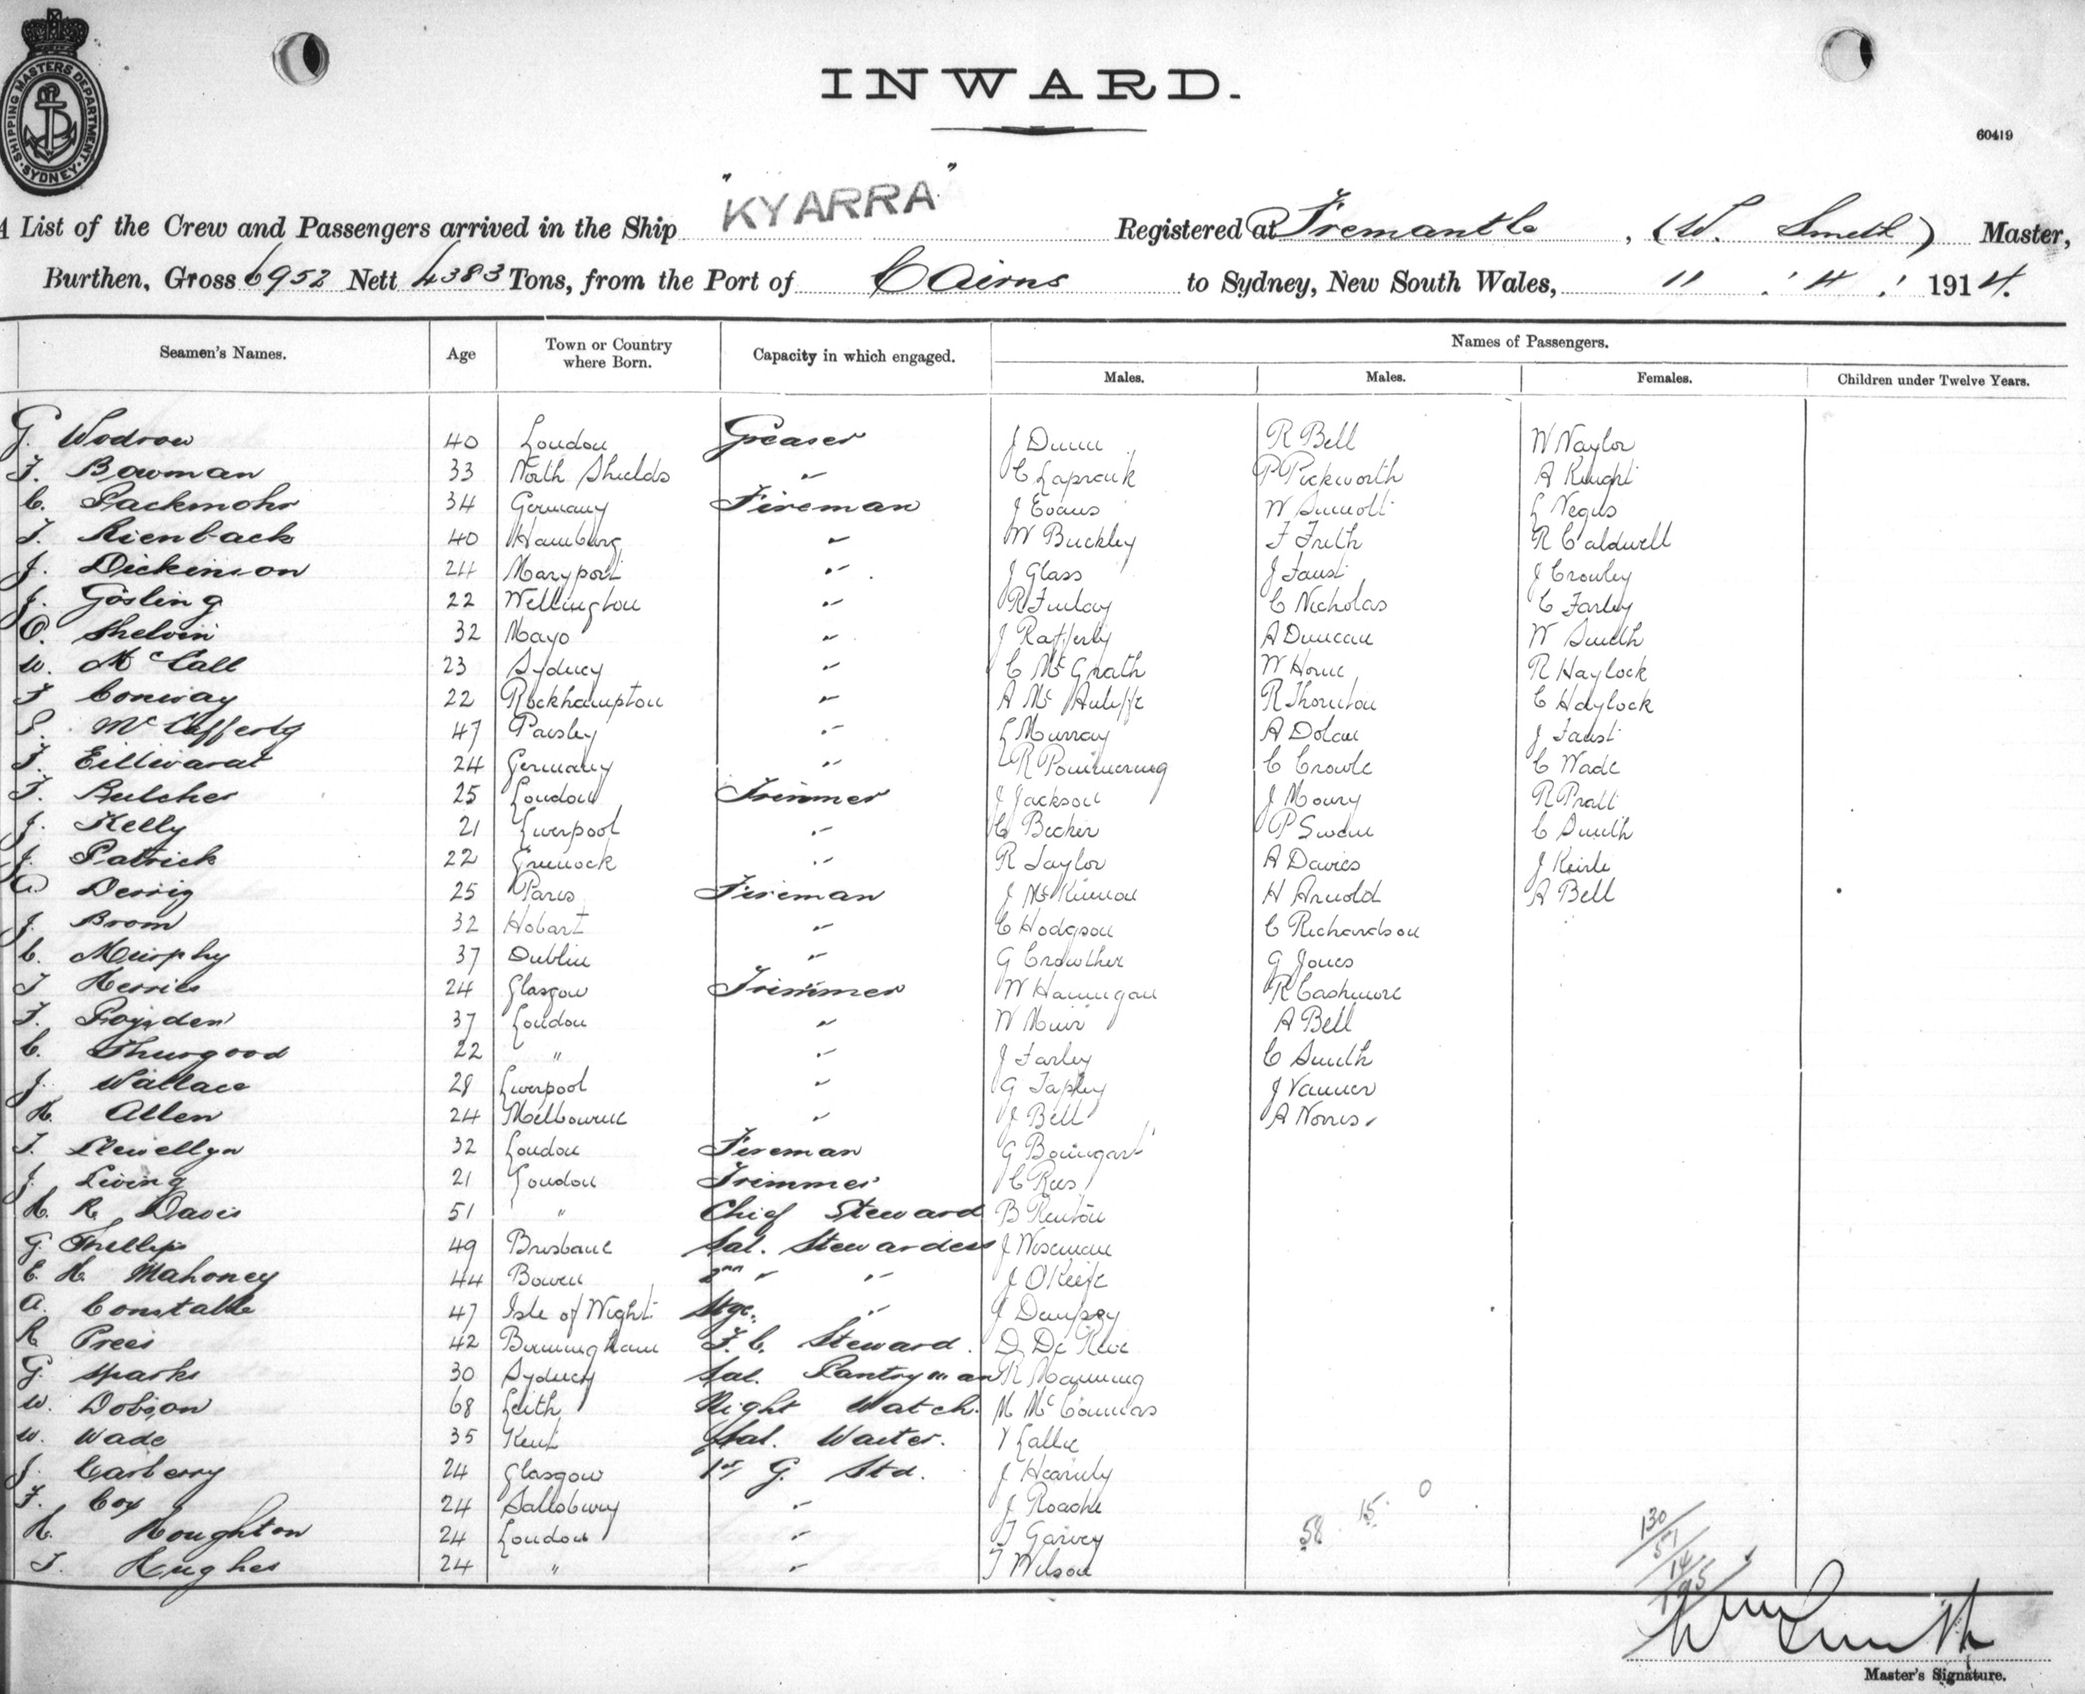 SHIPPING MASTERS DEPARTMENT · SYDNEY ·
INWARD.
60419
A List of the Crew and Passengers arrived in the Ship "KYARRA" Registered at Fremantle, (W. Smith) Master,
Burthen, Gross 6952 Nett 4383 Tons, from the Port of Cairns to Sydney, New South Wales, 11 . 4 . 1914.
Names of Passengers.
Seamen's Names. Age Town or Country where Born. Capacity in which engaged. Males. Males. Females. Children under Twelve Years.
G. Wodrow 40 London Greaser J Dunn R Bell W Naylor
T. Bowman 33 North Shields " C Lapraik P Pickworth A Knight
C. Packmohr 34 Germany Fireman J Evans W Sunnott L Negus
T. Rienback 40 Hamburg " W Buckley F Frith R Caldwell
J. Dickinson 24 Maryport " J Glass J Faust J Crowley
J. Gosling 22 Wellington " R Finlay C Nicholas C Farley
O. Shelvin 32 Mayo " J Rafferty A Duncan W Smith
W. McCall 23 Sydney " C McGrath W Horne R Haylock
F Conway 22 Rockhampton " A McAuliffe R Thornton C Haylock
P. McCafferty 47 Paisley " L Murray A Dolan J Faust
24 Germany " R Pommerung C Crowle C Wade
F. Butcher 25 London Trimmer J Jackson J Moury R Pratt
J. Kelly 21 Liverpool " C Becker P Swan C Smith
J. Patrick 22 Greenock " R Taylor A Davies J Keirle
Derrig 25 Paris Fireman J McKinnon H Arnold A Bell
J. Broom 32 Hobart " C Hodgson C Richardson
C. Murphy 37 Dublin " G Crowther G Jones
T Herries 24 Glasgow Trimmer W Hannigan R Cashmore
F. Royden 37 London " W Muir A Bell
C. Thurgood 22 " " J Farley C Smith
J. Wallace 28 Liverpool " G Tapley J Vanner
H. Allen 24 Melbourne " J Bell A Norris
T. Llewellyn 32 London Fireman G Bomgart
J. Living 21 London Trimmer C Rees
H. R. Davis 51 " Chief Steward B Renton
G. Phillips 49 Brisbane Sal. Stewardess J Wiseman
E. H. Mahoney 44 Bowen 2nd " " J OKeefe
A. Constable 47 Isle of Wight Stge. " J Dempsey
R Prees 42 Birmingham F. C. Steward. D De
G. Sparks 30 Sydney Sal. Pantryman R Manning
W. Dobson 68 Leith Night Watch. M
W. Wade 35 Kent Sal. Waiter. V Lallie
J. Carberry 24 Glasgow 1st G. Std. J
F. Cox 24 Salisbury " J Roache
H. Houghton 24 London " T Garvey
T. Hughes 24 " " T Wilson
58 15 0
130
51
14
195
Wm Smith
Master's Signature.